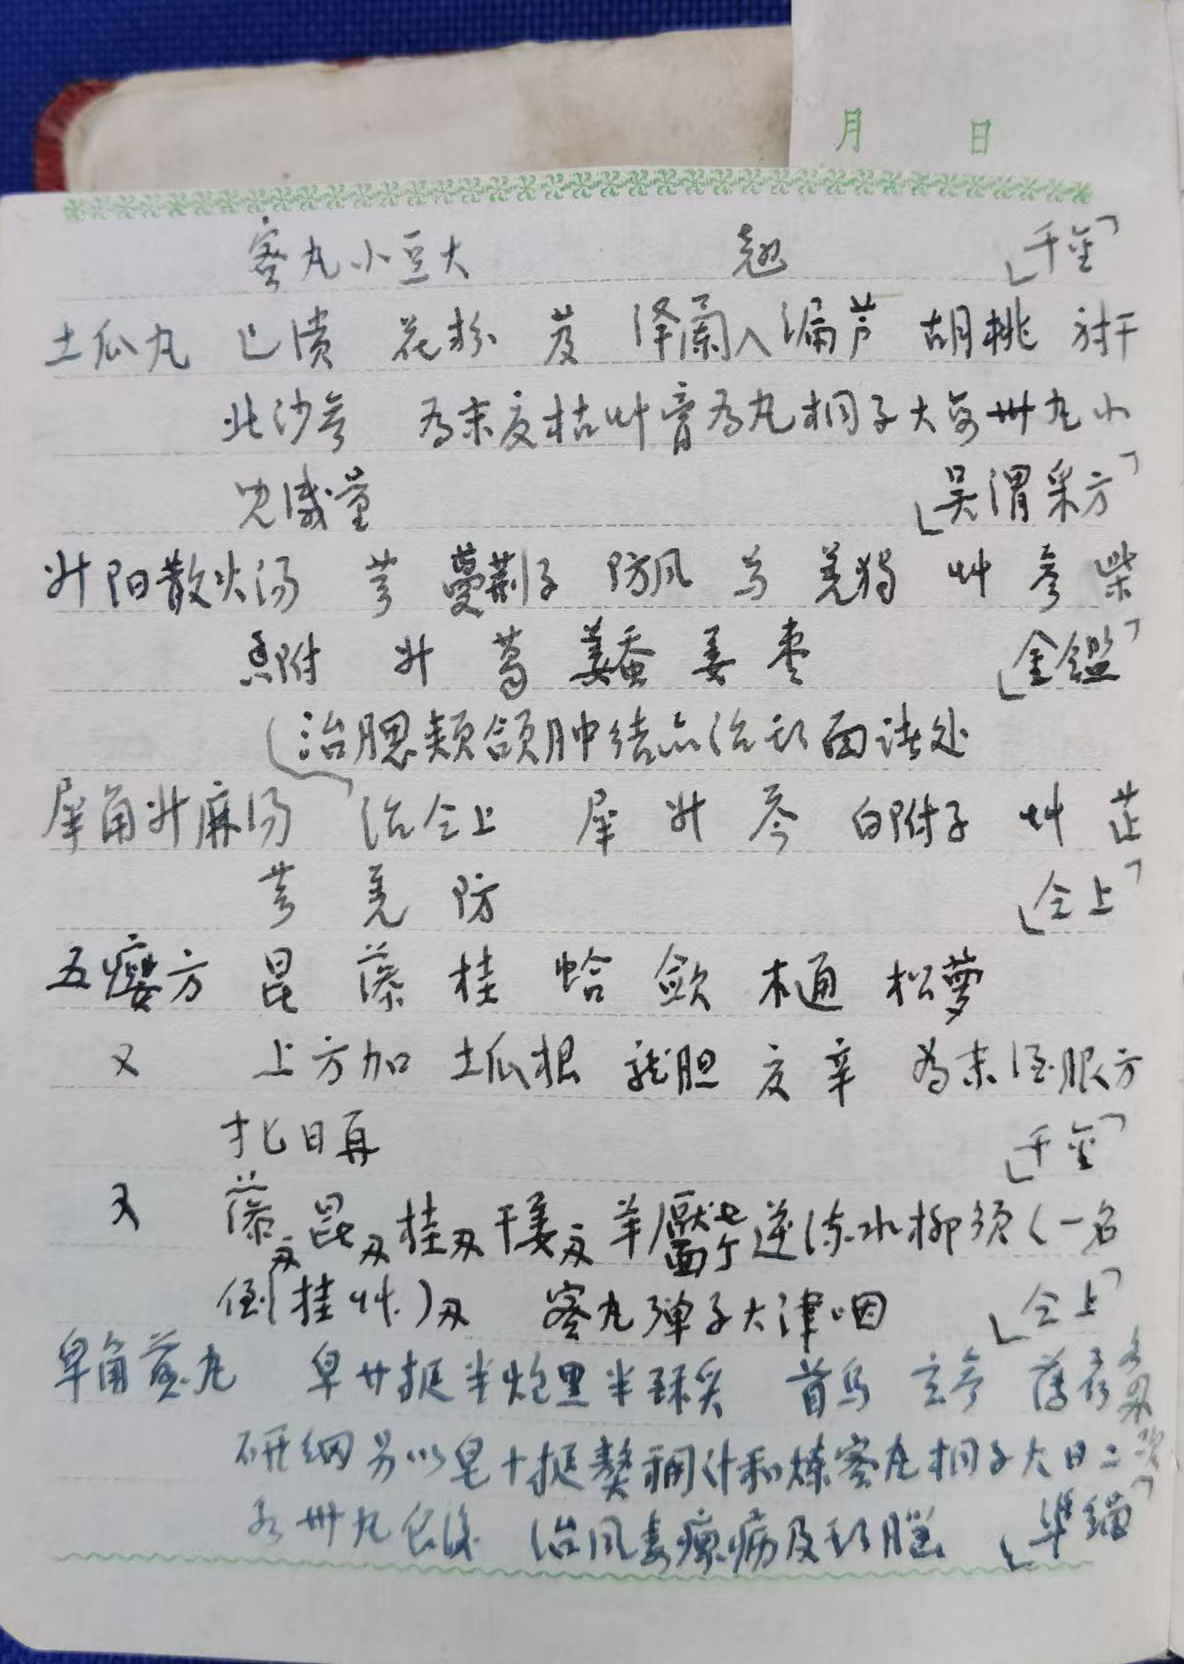 月 日
蜜丸小豆大 翘 「千金」
土瓜丸 已溃 花粉 芨 泽兰入漏芦 胡桃 射干
北沙参 为末夏枯艸膏为丸桐子大每卅丸小
儿减量 「吴渭采方」
升阳散火汤 芎 蔓荆子 防风 芍 羌独 艸 参 柴
香附 升 葛 姜蚕 姜 枣 「金鑑」
(治腮颊颌肿结亦治头面诸处
犀角升麻汤 治仝上 犀 升 芩 白附子 艸 芷
芎 羌 防 「仝上」
五瘿方 昆 藻 桂 蛤 欬 木通 松萝
又 上方加 土瓜根 龙胆 夏 辛 为末酒服方
匕日再 「千金」
又 藻 昆 桂 干姜 羊靥七个逆流水柳须(一名
倒挂艸) 蜜丸弹子大津咽 「仝上」
皂角煎丸 皂廿挺半炮黑半酥炙 首乌 玄参 薄荷 各
研细另以皂十挺熬稠汁和炼蜜丸桐子大日二次
卅丸食后 治风毒瘰疬及头 「准绳」